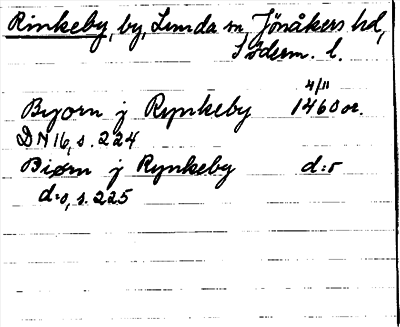 Rinkeby, by, Lunda sn, Jönåkers hd,
Söderm. l.
Byorn j Rynkeby 4/11 1460 or.
DN 16, s. 224
Biørn j Rynkeby d:o
d:o, s. 225